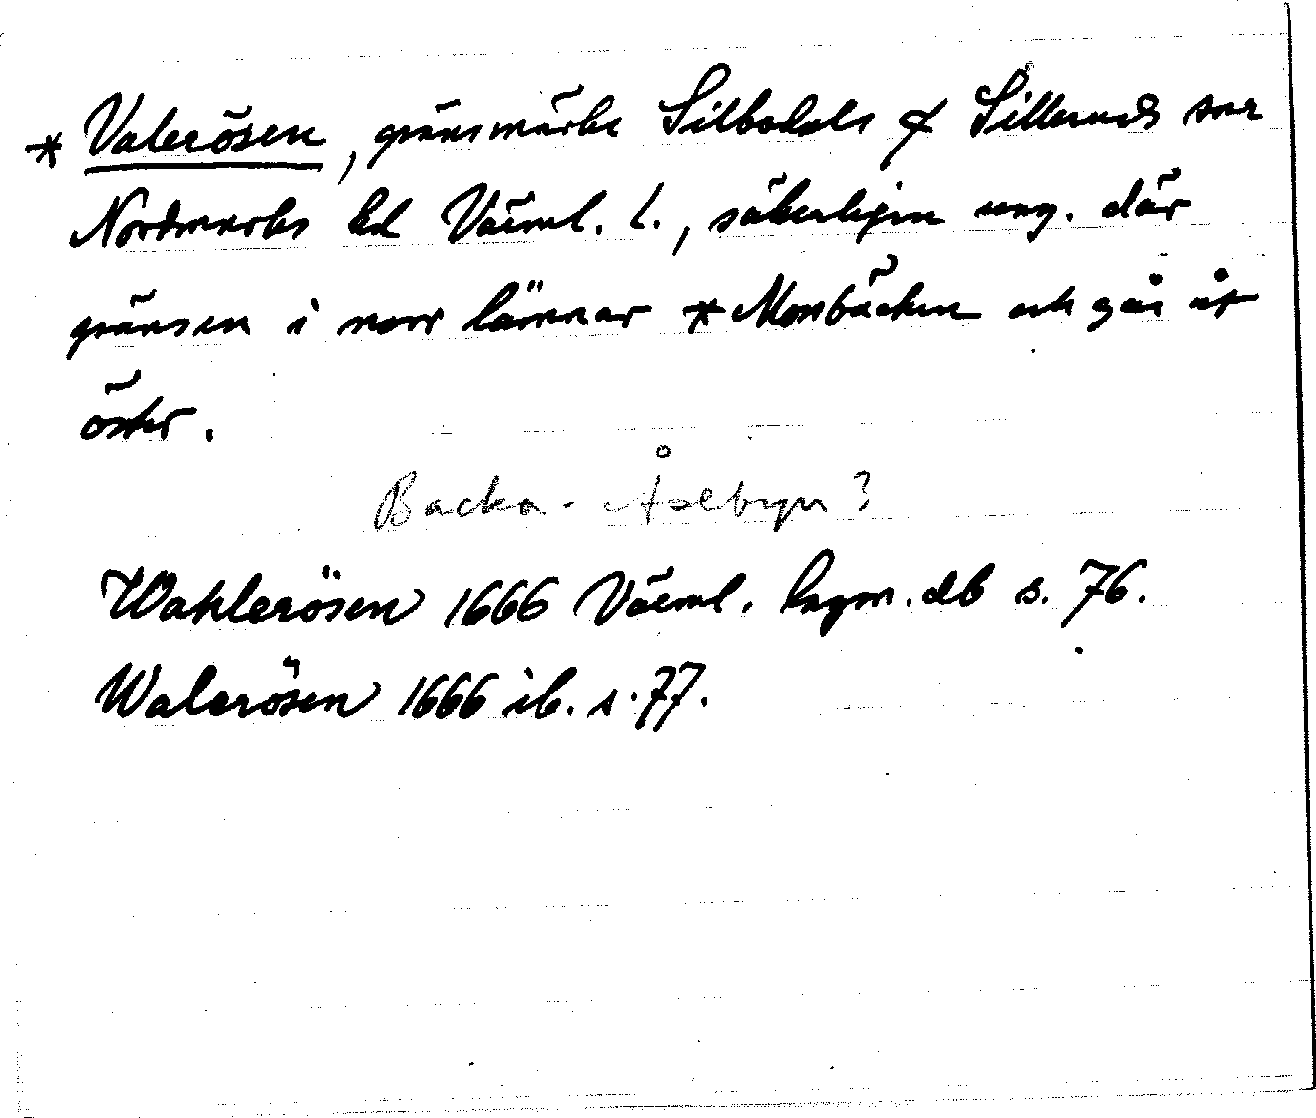 * Valerösen, gränsmärke Silbodals & Sillerud snr
Nordmarks hd Värml. l., säkerligen ung. där
gränsen i norr lämnar * Monbäcken och går åt
öster.
Backa - Åselbyn?
Wahlerösen 1666 Värml. lagm. db s. 76.
Walerösen 1666 ib. s. 77.